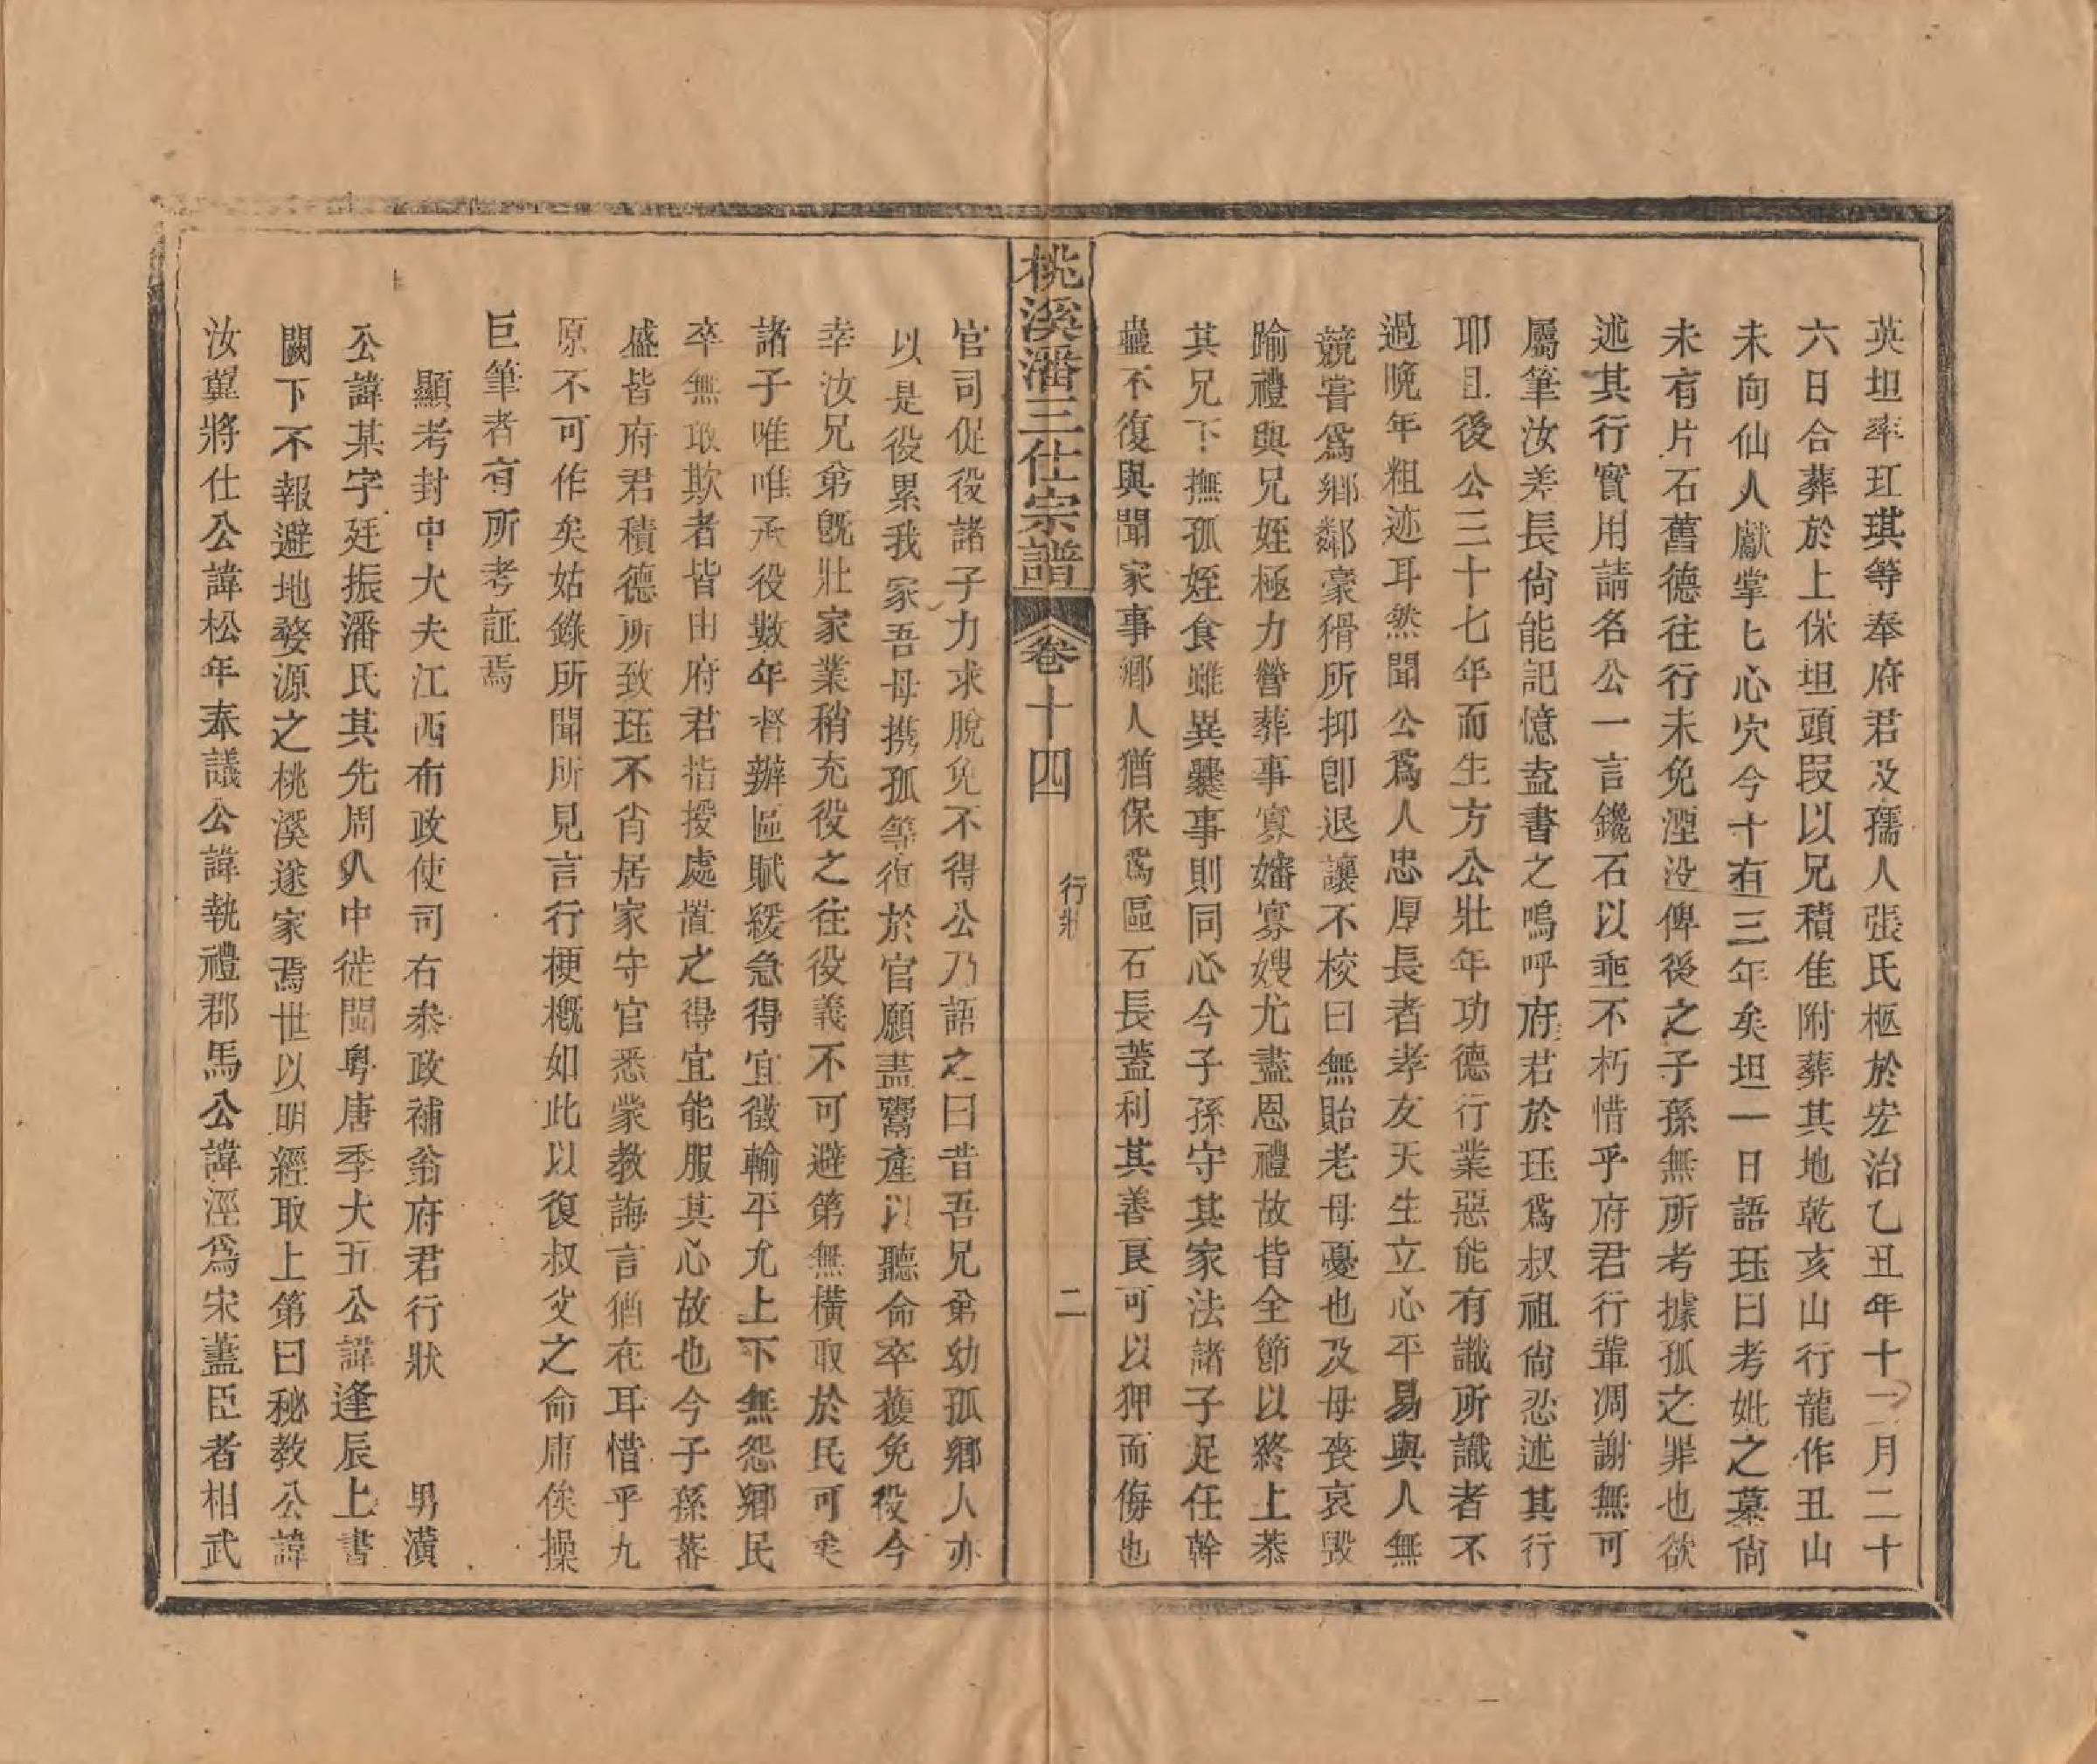 英坦率玒琪等奉府君及孺人張氏柩於宏治乙丑年十二月二十
六日合葬於上保坦頭段以兄積隹附葬其地乾亥山行龍作丑山
未向仙人獻掌匕心穴今十有三年矣坦一日語珏曰考妣之墓尙
未有片石舊德往行未免湮没俾後之子孫無所考據孤之罪也欲
述其行實用請名公一言鑱石以垂不朽惜乎府君行輩凋謝無可
屬筆汝差長尙能記憶盍書之嗚呼府君於珏爲叔祖尙忍述其行
耶且後公三十七年而生方公壯年功德行業惡能有識所識者不
過晚年粗迹耳然聞公爲人忠厚長者孝友天生立心平易與人無
競嘗爲鄉鄰豪猾所抑卽退讓不校曰無貽老母憂也及母喪哀毁
踰禮與兄姪極力營葬事寡嬸寡嫂尤盡恩禮故皆全節以終上恭
其兄下撫孤姪食雖異爨事則同心今子孫守其家法諸子足任幹
蠱不復與聞家事鄉人猶保爲區石長蓋利其善良可以狎而侮也
桃溪潘三仕宗譜 卷十四 行狀 二
官司促役諸子力求脫免不得公乃語之曰昔吾兄弟幼孤鄉人亦
以是役累我家吾母携孤等徃於官願盡鬻產以聽命卒獲免役今
幸汝兄弟旣壯家業稍充役之往役義不可避第無橫取於民可矣
諸子唯唯承役數年督辦區賦緩急得宜徵輸平允上下無怨鄉民
卒無敢欺者皆由府君指授處置之得宜能服其心故也今子孫蕃
盛皆府君積德所致珏不肖居家守官悉蒙教誨言猶在耳惜乎九
原不可作矣姑錄所聞所見言行梗概如此以復叔父之命庸俟操
巨筆者有所考証焉
顯考封中大夫江西布政使司右叅政補翁府君行狀 男潢
公諱某字廷振潘氏其先周㕥中徙閩粤唐季大五公諱逢辰上書
闕下不報避地婺源之桃溪遂家焉世以明經取上第曰秘教公諱
汝翼將仕公諱松年奉議公諱執禮郡馬公諱涇爲宋藎臣者相武